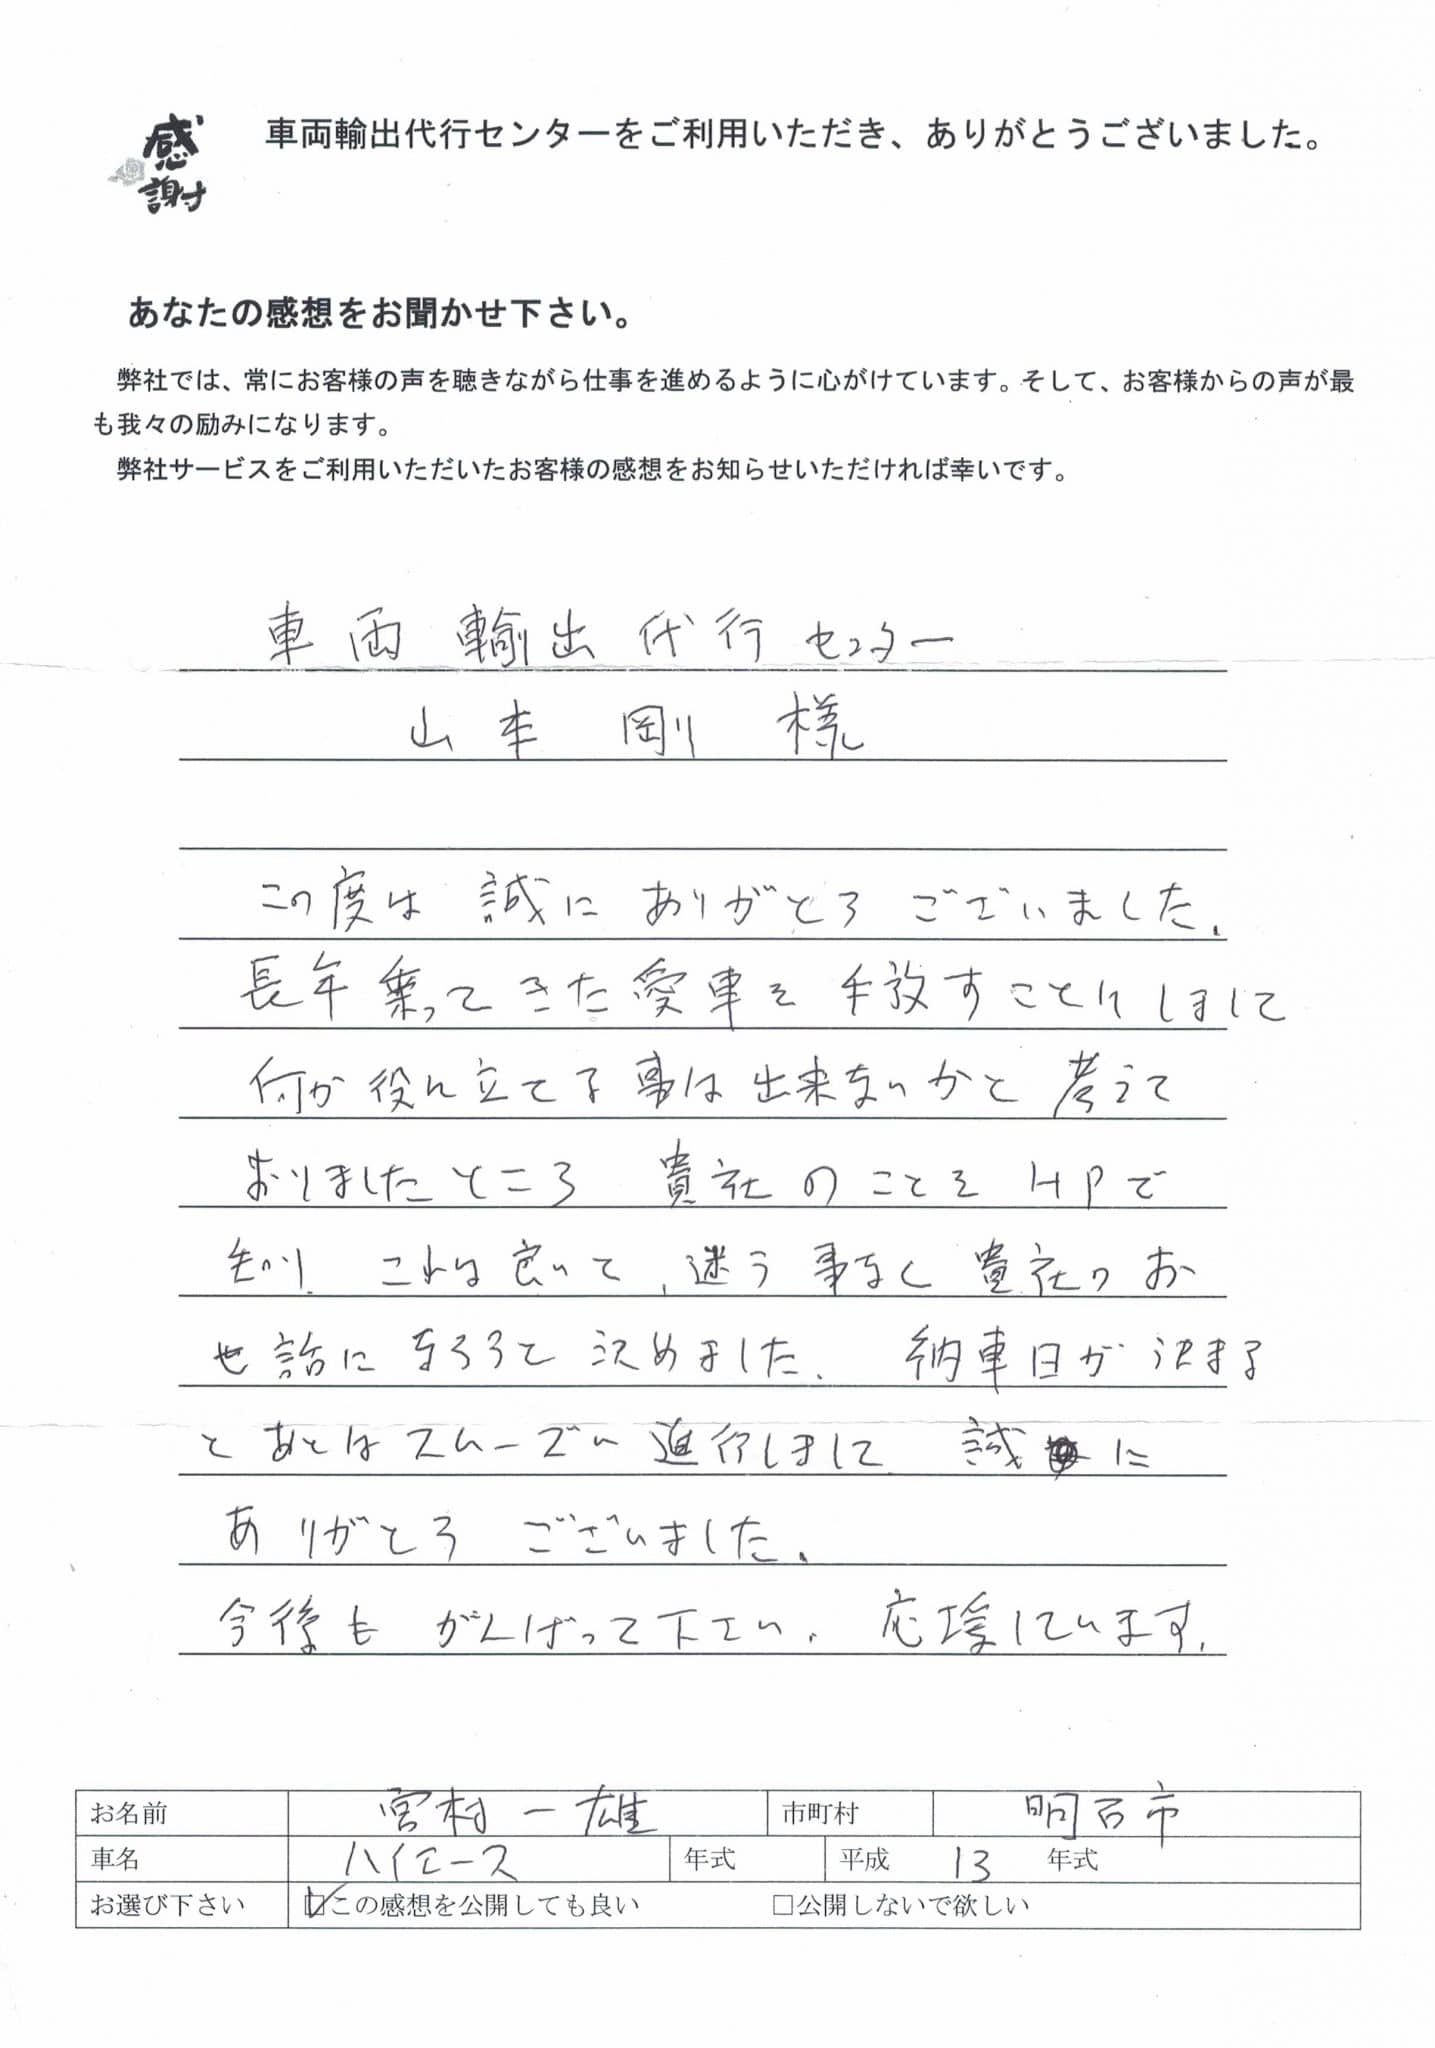 感謝
車両輸出代行センターをご利用いただき、ありがとうございました。
あなたの感想をお聞かせ下さい。
弊社では、常にお客様の声を聴きながら仕事を進めるように心がけています。そして、お客様からの声が最
も我々の励みになります。
弊社サービスをご利用いただいたお客様の感想をお知らせいただければ幸いです。
車両輸出代行センター
山本 剛 様
この度は 誠に ありがとう ございました。
長年乗ってきた愛車を手放すことにしまして
何か役に立てる事は出来ないかと考えて
おりましたところ 貴社のことを HPで
知り、これは良いて、迷う事なく貴社のお
世話になろうと決めました。 納車日が決まる
とあとはスムーズに進行しまして 誠に
ありがとう ございました。
今後も がんばって下さい。 応援しています。
お名前 宮村一雄 市町村 明石市
車名 ハイエース 年式 平成 13 年式
お選び下さい ☑この感想を公開しても良い □公開しないで欲しい